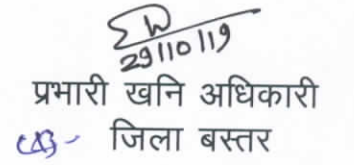 29/10/19
प्रभारी खनि अधिकारी
जिला बस्तर